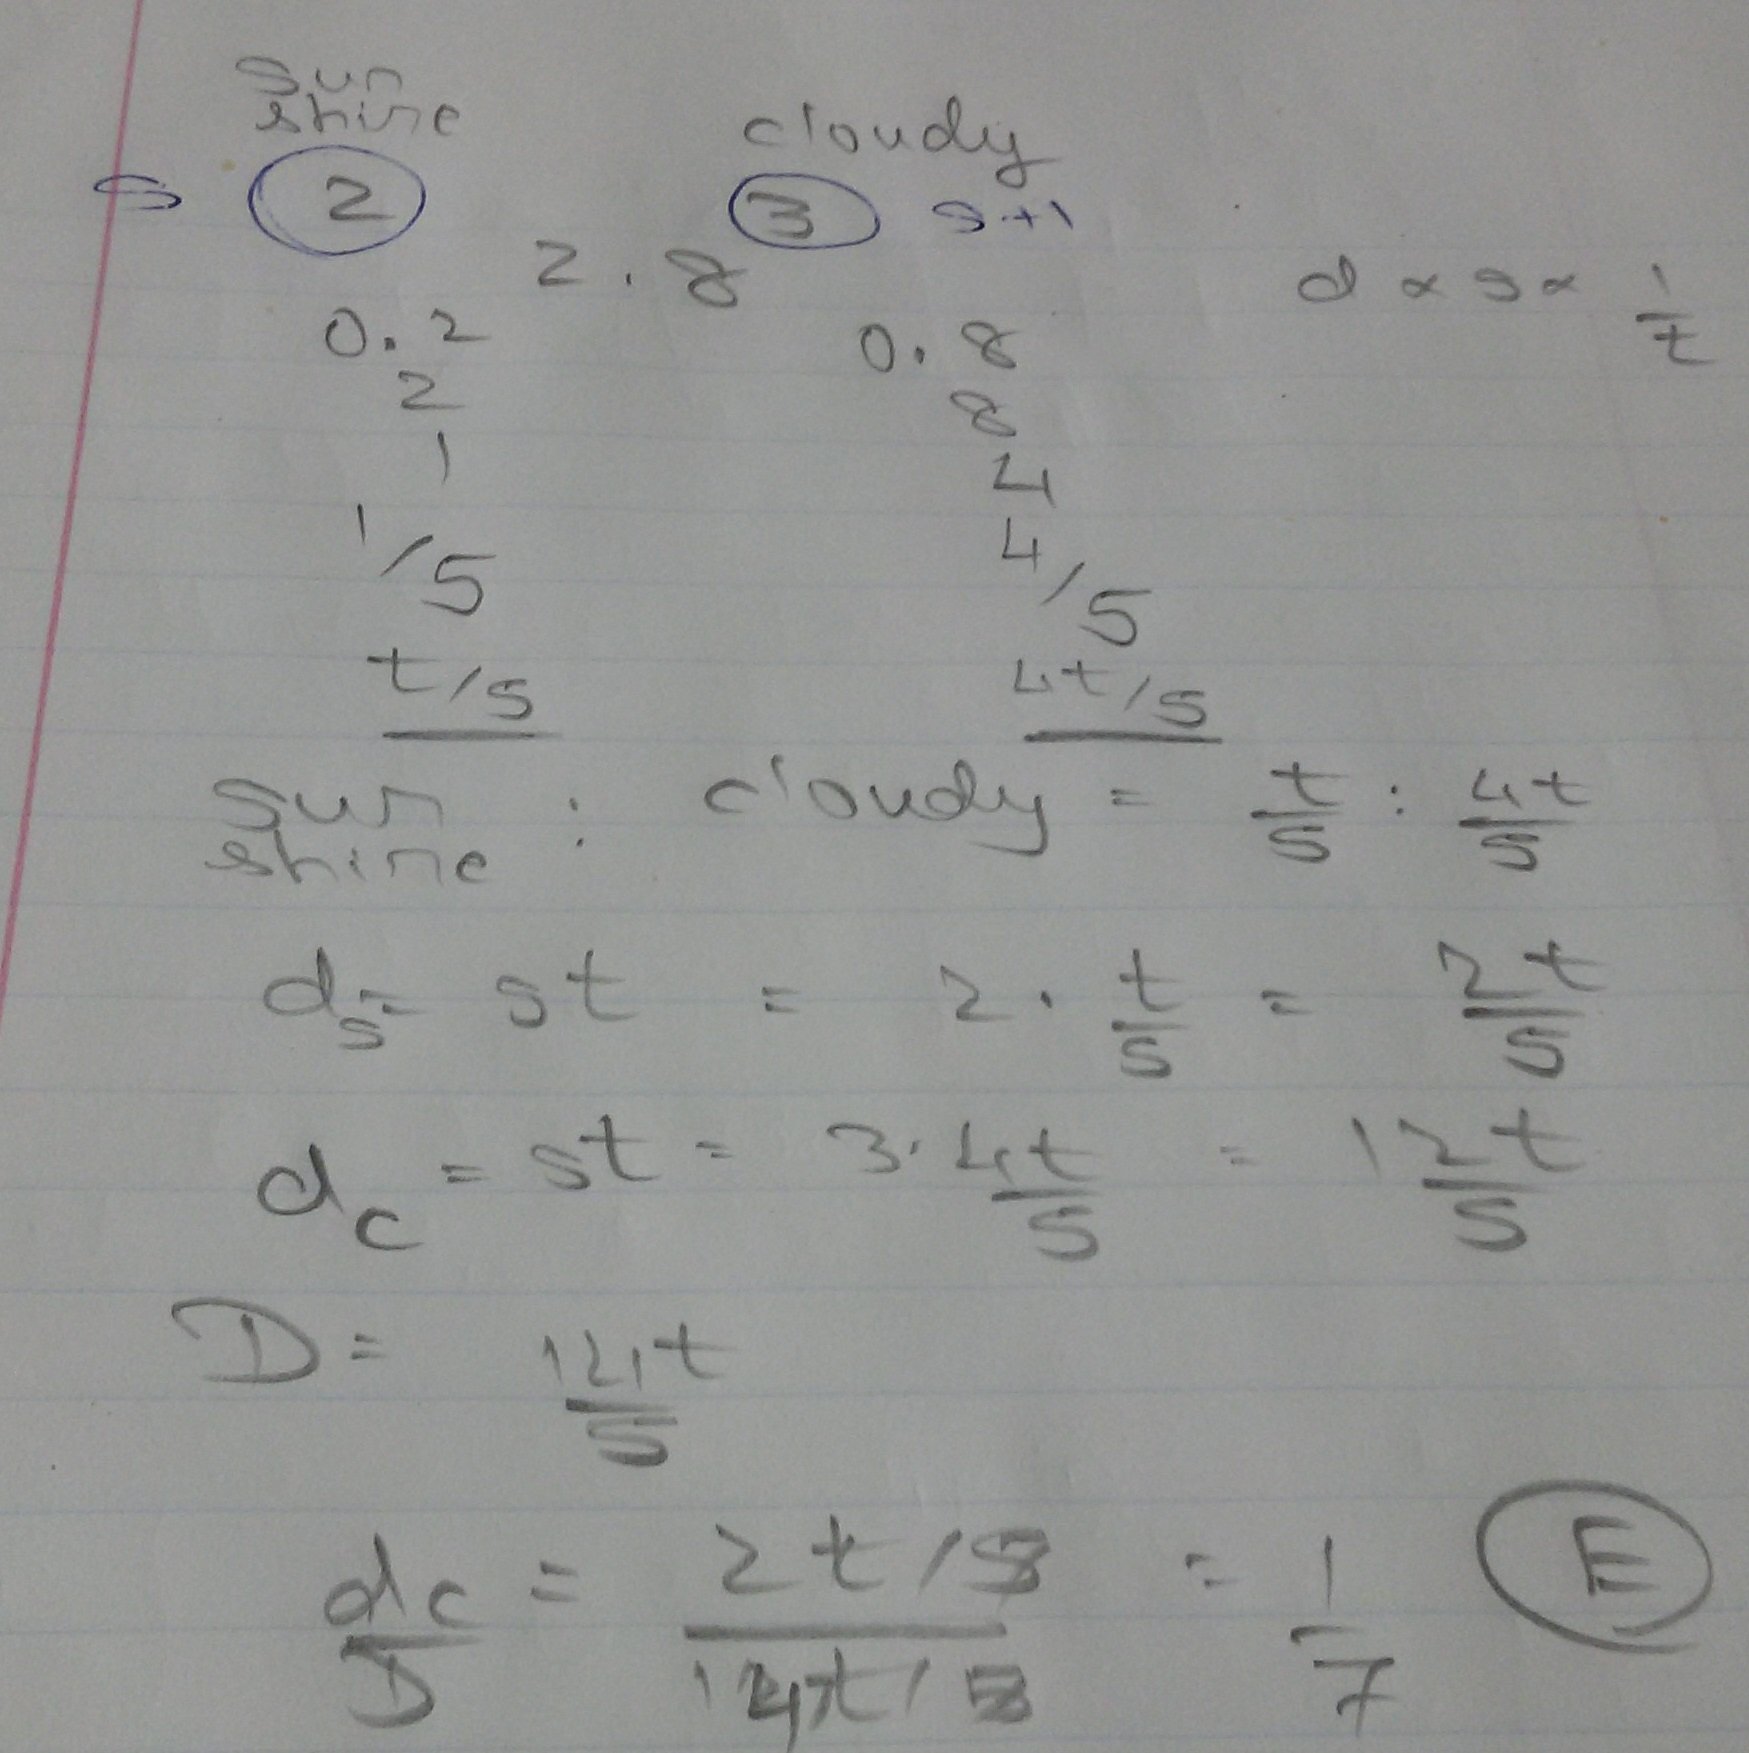 sun
shine cloudy
s 2 3 s+1
2.8
d ∝ s ∝ 1/t
0.2 0.8
2 8
1 4
1/5 4/5
t/5 4t/5
sun
shine : cloudy = t/5 : 4t/5
ds = st = 2 · t/5 = 2t/5
dc = st = 3 · 4t/5 = 12t/5
D = 14t/5
dc/D = 2t/5 / 14t/5 = 1/7 E